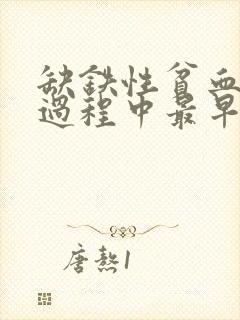 缺鉄性貧血
過程中最早
唐熬1